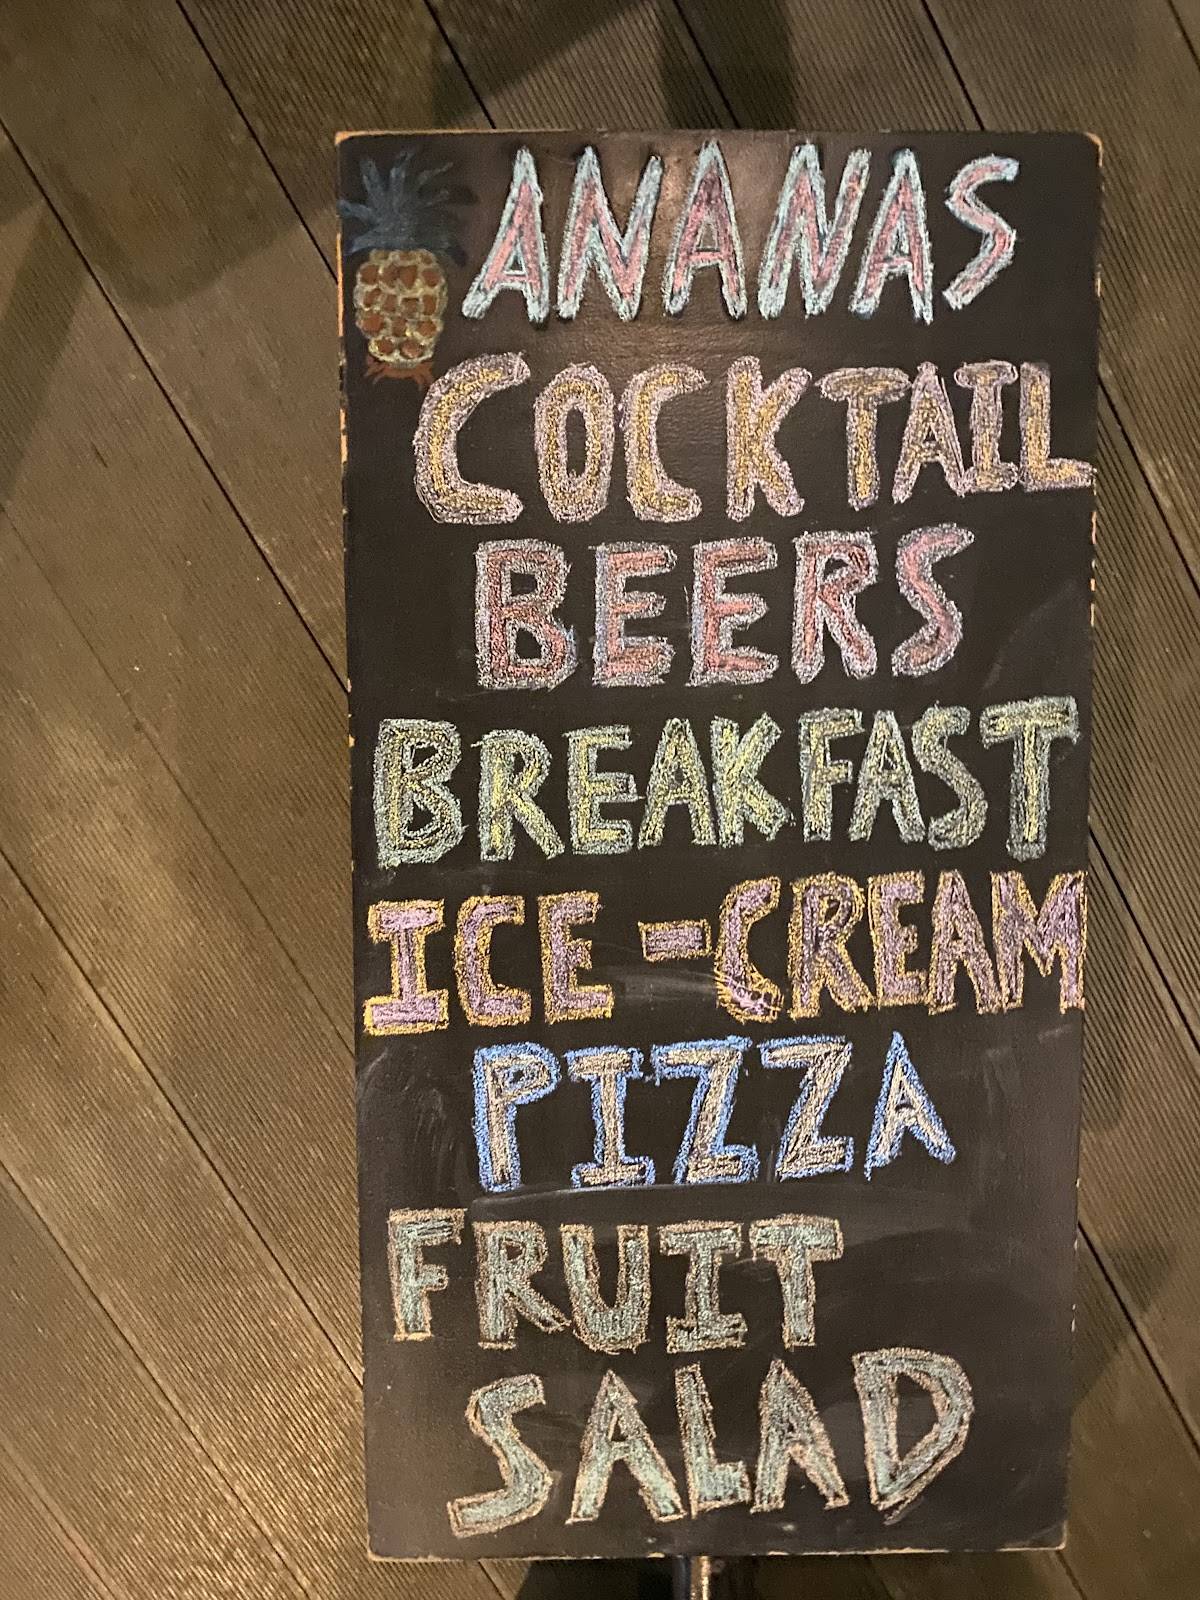 ANANAS
COCKTAIL
BEERS
BREAKFAST
ICE-CREAM
PIZZA
FRUIT
SALAD